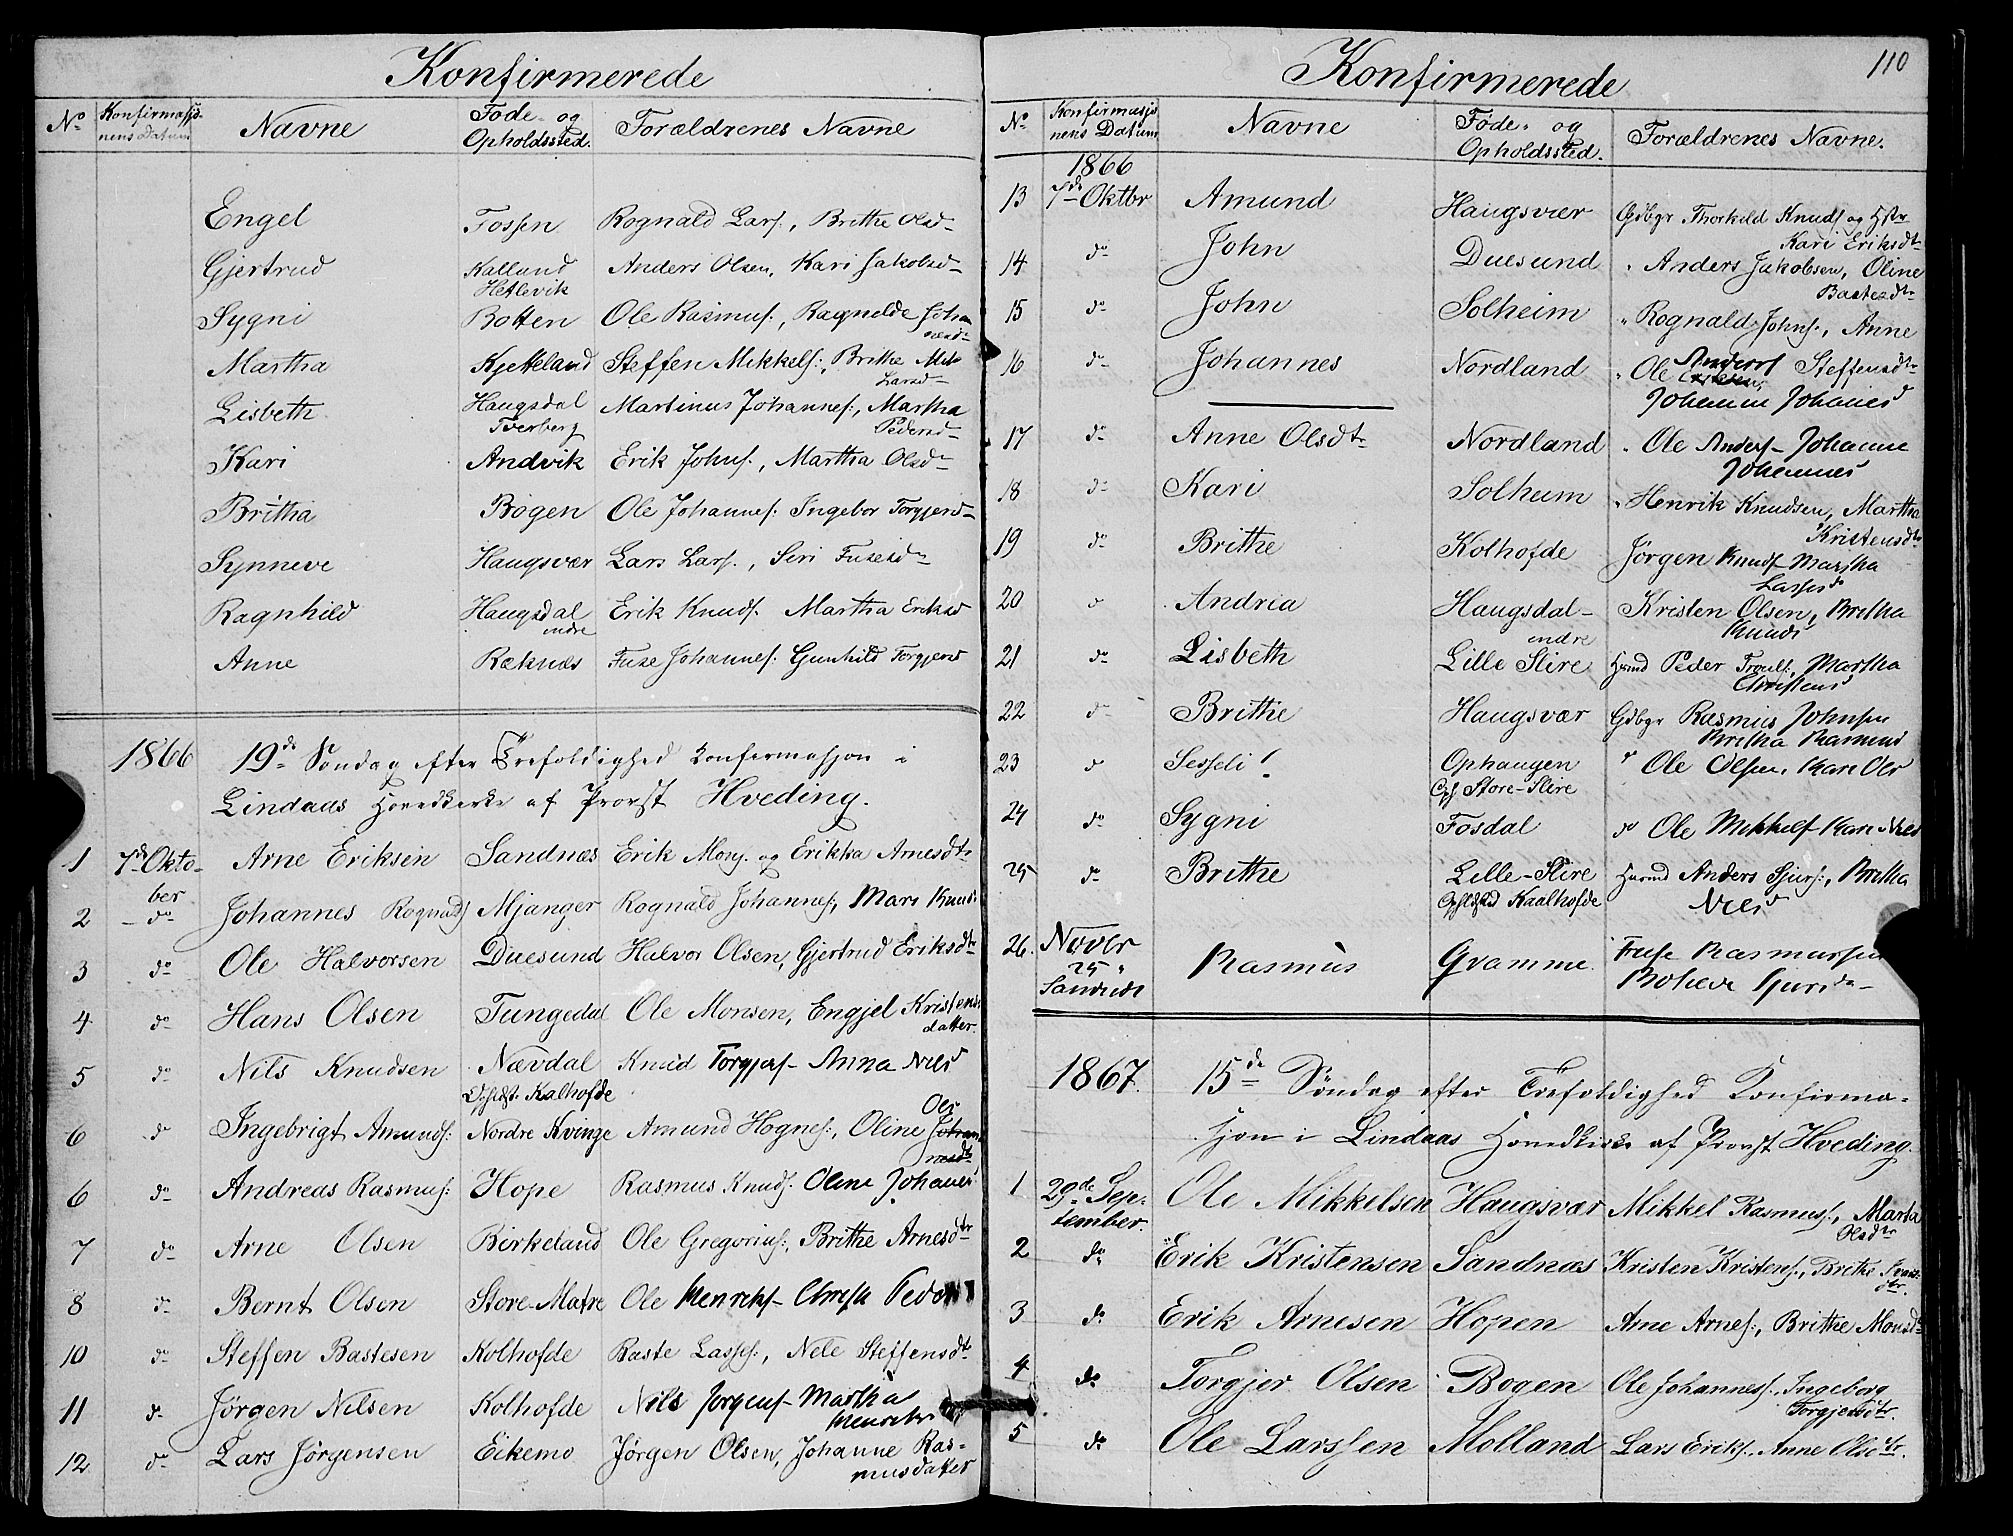 Konfirmerede
No Konfirmasjo- nens Datum Navne Føde- og Opholdssted. Forældrenes Navne
Engel Fossen Rognald Lars:, Brithe Olsd
Gjertrud Kalland Anders Olsen, Kari Jakobsd
Hetlevik
Sygni Botten Ole Rasmus:, Ragnelde Johan
nesd
Martha Kjetteland Steffen Mikkels:, Brithe
Larsd
Lisbeth Haugsdal Martinus Johannes:, Martha
Tverberg Pedersd
Kari Andvik Erik Johns:, Martha Olsd
Britha Bogen Ole Johannes: Ingebor Torgjersd
Synneve Haugsvær Lars Lars:, Siri Fusesd
Ragnhild Haugsdal Erik Knuds: Martha Eriksd
indre
Anne Reknes Fuse Johannes: Gunhild Torgjersd
1866 19de Søndag efter Trefoldighed Konfermasjon i
Lindaas Hovedkirke af Provst Hveding.
1 7de Okto- Arne Eriksen Sandnæs Erik Mons: og Erikka Arnesdtr
ber
2 do Johannes Rognads Mjanger Rognald Johannes:, Mari Knuds
3 do Ole Halvorsen Duesund Halvor Olsen, Gjertrud Eriksdtr
4 do Hans Olsen Tungedal Ole Monsen, Engjel Kristens
datter
5 do Nils Knudsen Nævdal Knud Torgjers- Anna Niels
Opholdst. Kalhofde
Ols
6 do Ingebrigt Amunds: Nordre Kvinge Amund Hognes:, Oline Johan
nesdtr
6 do Andreas Rasmus: Hope Rasmus Knuds: Oline Johanes
7 do Arne Olsen Birkeland Ole Gregorius:, Brithe Arnesdtr
8 do Bernt Olsen Store-Matre Ole Henriks-
10 do Steffen Bastesen Kolhofde Baste Lasses:, Nele Steffensdtr
11 do Jørgen Nilsen Kolhofde Nils Jørgens- Martha
Henriks
12 do Lars Jørgensen Eikemo Jørgen Olsen, Johanne Ras-
musdatter
Konfirmerede 110
No Konfirmasjo nens Datum Navne Føde- og Opholdssted. Forældrenes Navne.
1866
13 7de Oktbr Amund Haugsvær Gdbgr Thorkild Knuds og Hstr
Kari Eriksdtr
14 do John Duesund " Anders Jakobsen, Oline
Bastesdtr
15 do John Solheim " Rognald Johns:, Anne
16 do Johannes Nordland " Ole Anders Steffensdtr
Johanne Johanes
17 do Anne Olsdtr Nordland " Ole Anders- Johanne
Johannes
18 do Kari Solheim " Henrik Knudsen, Martha
Kristensdtr
19 do Brithe Kolhofde Jørgen Knuds- Martha
Lasses
20 do Andrea Haugsdal- Kristen Olsen, Britha
indre Knuds
21 do Lisbeth Lille Slire Husmd Peder Trouls:, Martha
Christens
22 do Brithe Haugsvær Gdbgr Rasmus Johnsen
Britha Rasmus
23 do Sesseli ! Ophaugen do Ole Olsen, Kari Ols
Oph Store-Slire
24 do Sygni Fosdal do Ole Mikkels- Kari Niels
25 do Brithe Lille-Slire Husmd Anders Sjurs:, Britha
Opholdsted Kaalhofde Niels
26. Novbr Rasmus Qvamme. Fuse Rasmussen
25
Sandnes
1867. 15de Søndag efter Trefoldighed Konfirma-
sjon i Lindaas Hovedkirke af Provst Hveding.
1 29de Sep- Ole Mikkelsen Haugsvær Mikkel Rasmus:, Marta
tember. Olsdtr
2 do Erik Kristensen Sandnæs Kristen Kristens:, Brithe
dtr.
3 do Erik Arnesen Hopen Arne Arnes:, Brithe Monsdtr
4 do Torgjer Olsen Bogen Ole Johannes:, Ingeborg
Torgjersdtr.
5 do Ole Larssen Molland Lars Eriks:, Anne Olsdtr.